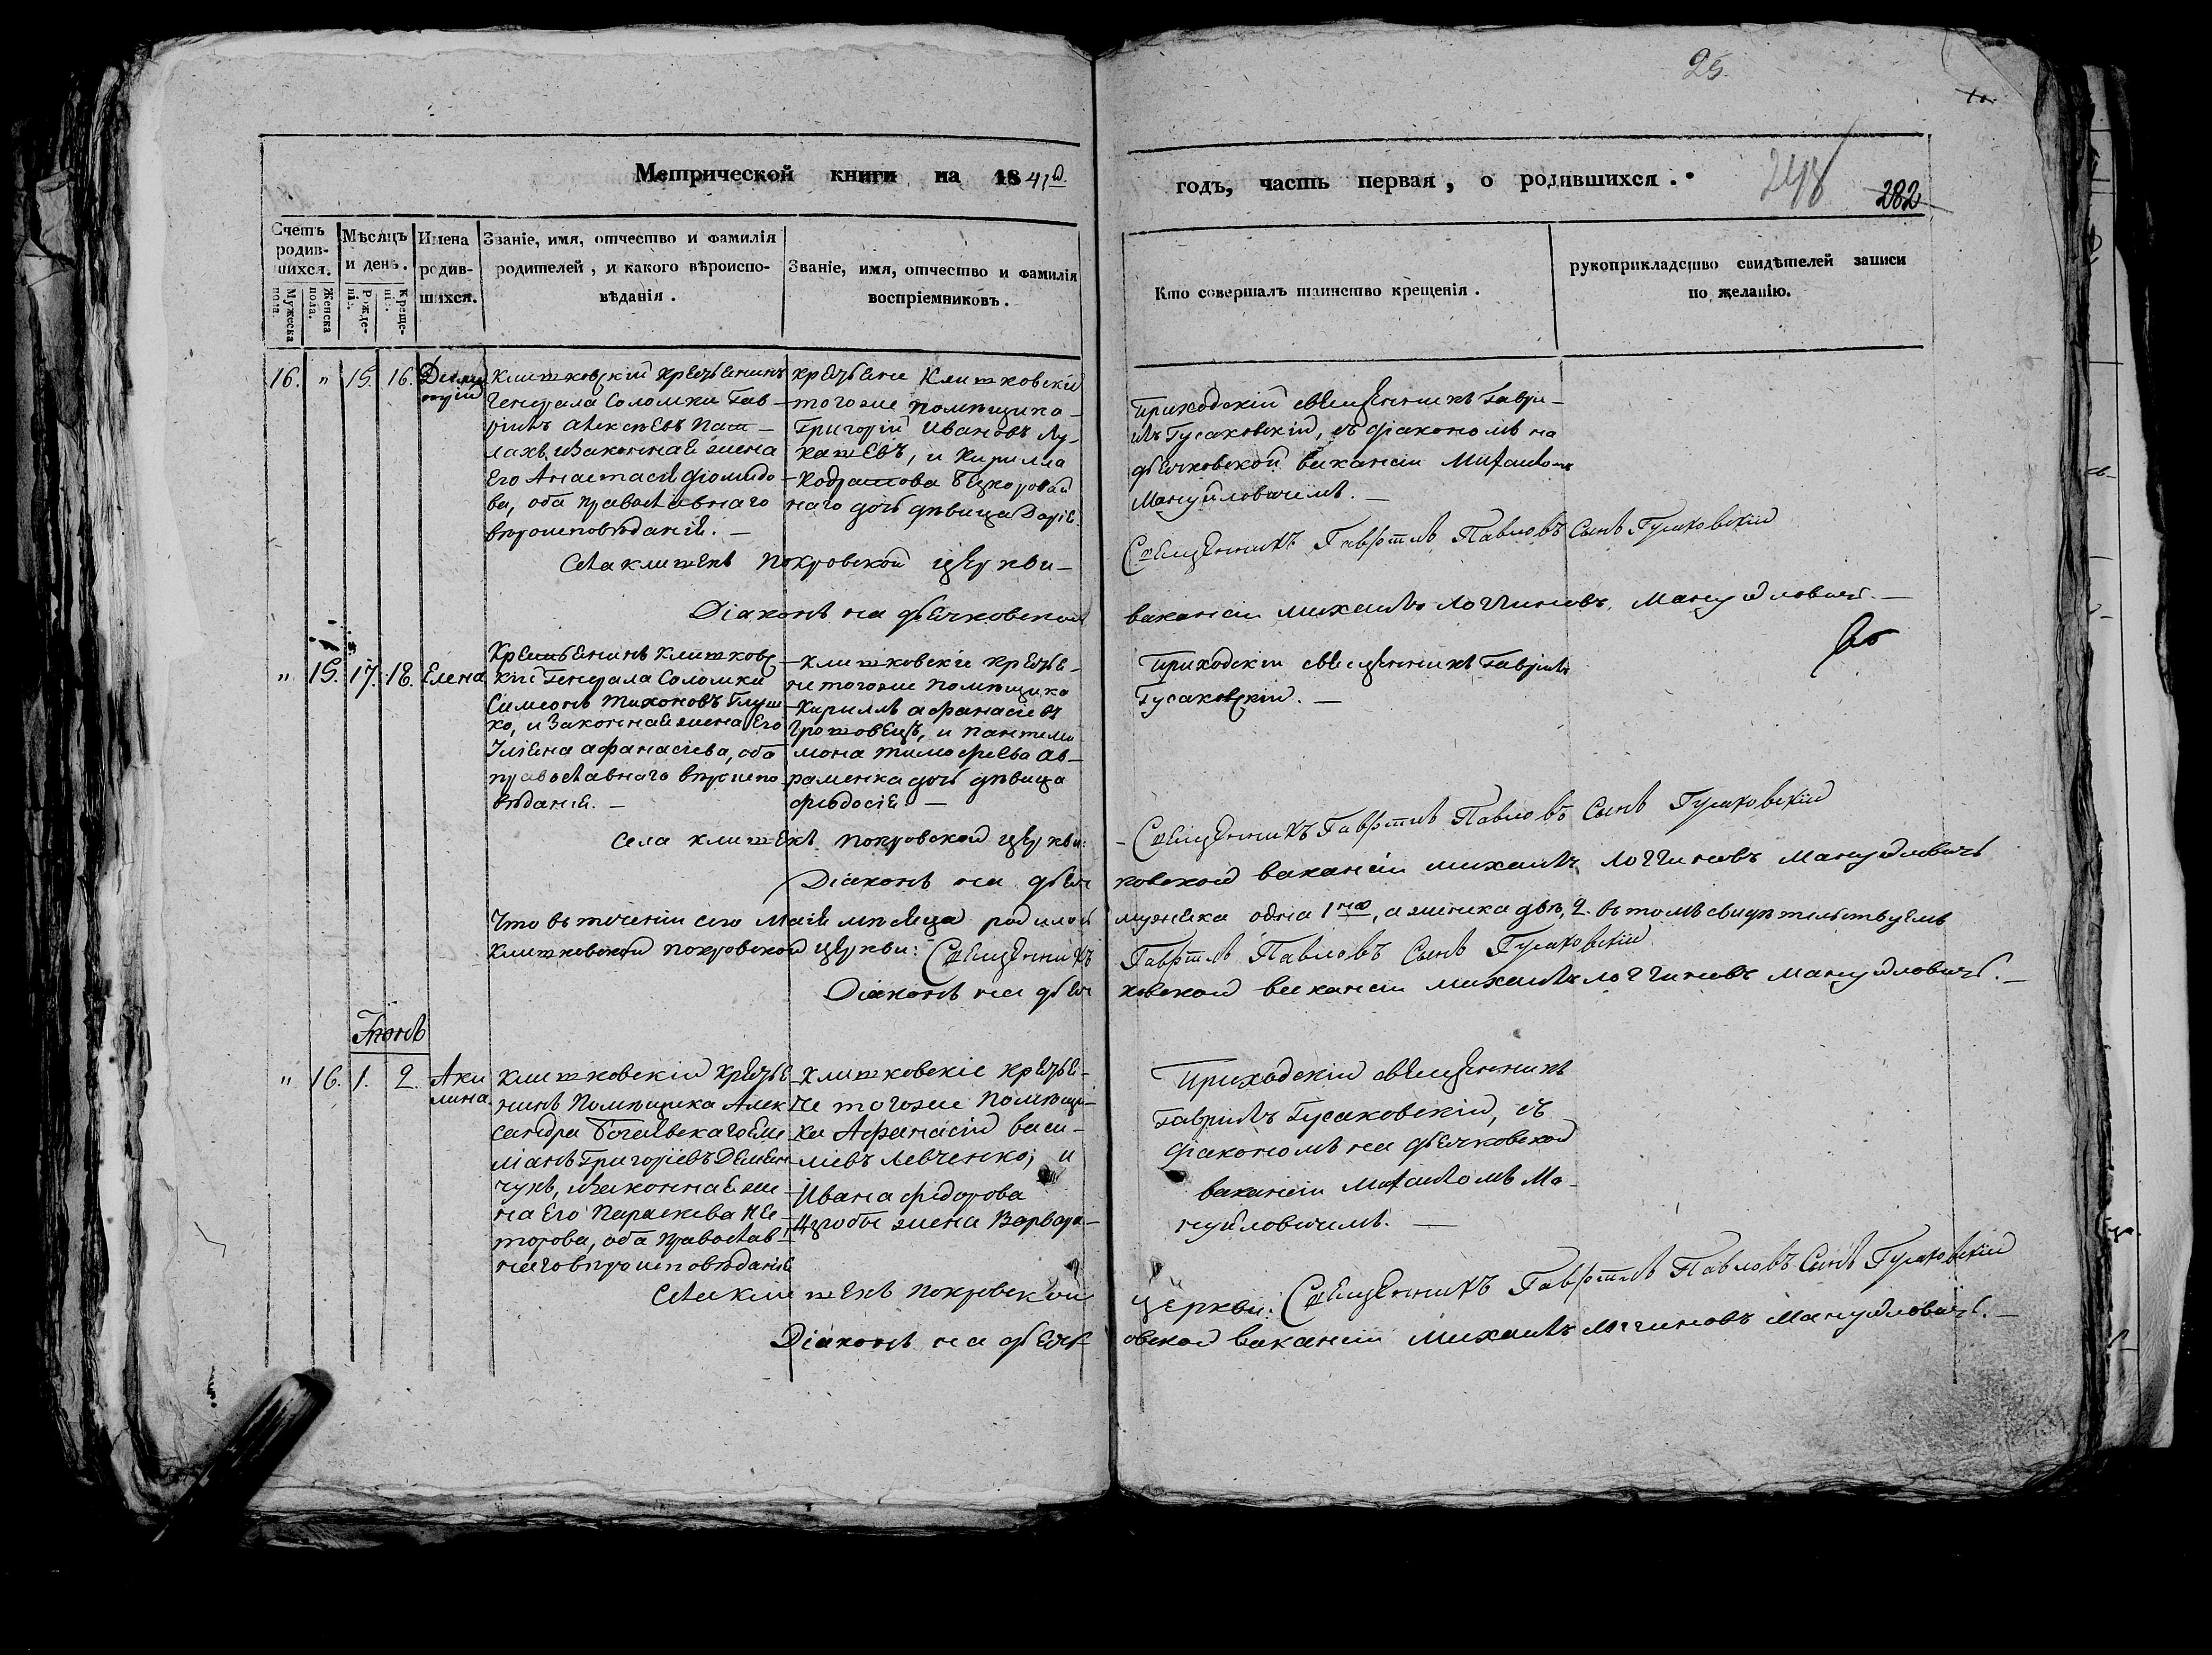 25.
10.
Метрической книги на 1841й
годъ, часть первая, о родившихся.
248
282
Счетъ родив-шихся.
Мужеска пола.
Женска пола.
Мѣсяцъ и день.
Рожде-нія.
Креще-нія.
Имена родив-шихся.
Званіе, имя, отчество и фамилія
родителей, и какого вѣроиспо-
вѣданія.
Званіе, имя, отчество и фамилія
воспріемниковъ.
Кто совершалъ таинство крещенія.
рукоприкладство свидѣтелей записи
по желанію.
16. " 15. 16.
Клишковскій крестьянинъ
Генерала Соломки Гав-
ріилъ Алексѣевъ
законная жена
его Анастасія
ва, оба православнаго
вѣроисповѣданія. —
крестьяне Клишковскіи
тогоже помѣщика
Григорій Ивановъ Лу-
кашевъ, и Кирилла
наго дочь дѣвица Дарія.
Приходскій священникъ Гаврі-
илъ Гусаковскій, съ діакономъ на
дьячковской вакансіи Михаиломъ
Мануйловичемъ. —
Села Клишекъ Покровской церкви —
Священникъ Гавріилъ Павловъ Сынъ Гусаковскій
Діаконъ на дьячковской
вакансіи Михаилъ Логгиновъ Мануйловичъ. —
" 15. 17. 18. Елена
Крестьянинъ Клишковс-
кій Генерала Соломки
Симеонъ Тихоновъ Глуш-
ко, и законная жена его
Ульяна Афанасіева, оба
православнаго вѣроиспо-
вѣданія. —
Клишковскіе крестья-
не тогоже помѣщика
Кирилъ Афанасіевъ
и Пантелей-
мона Тимофеева Ав-
раменка дочь дѣвица
Феодосія —
Приходскій священникъ Гавріилъ
Гусаковскій. —
Села Клишекъ Покровской церкви:
Священникъ Гавріилъ Павловъ Сынъ Гусаковскій
Діаконъ на дьяч
ковской вакансіи Михаилъ Логгиновъ Мануйловичъ
Что въ теченіи сего Маія мѣсяца родилось
мужеска одна 1на, а женска двѣ, 2. въ томъ свидѣтельствуемъ
Клишковской Покровской церкви: Священникъ
Гавріилъ Павловъ Сынъ Гусаковскій
Діаконъ на дьяч
ковской вакансіи Михаилъ Логгиновъ Мануйловичъ. —
Іюнь
" 16. 1. 2. Аки
лина
Клишковскій крестья-
нинъ помѣщика Алек
сандра Еме
ліанъ Григоріевъ Демен
чукъ, и законная же
на его Параскева Не
торова, оба православ
наго вѣроисповѣданія
Клишковскіе крестья-
не тогоже помѣщи-
ка Афанасій Васи-
ліевъ Левченко, и
Ивана Федорова
жена Варвара —
Приходскій священникъ
Гавріилъ Гусаковскій, съ
діакономъ на дьячковской
вакансіи Михаиломъ Ма-
нуйловичемъ. —
Села Клишекъ Покровской
церкви: Священникъ Гавріилъ Павловъ Сынъ Гусаковскій
Діаконъ на дьячк
овской вакансіи Михаилъ Логгиновъ Мануйловичъ. —